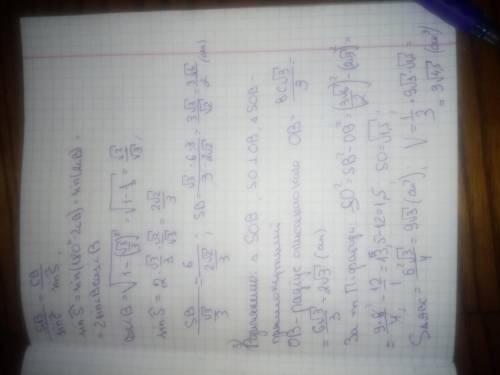 SB/sin C = CB/sin S
sin S = sin(180° - 2∠B) = sin(2∠B) =
= 2 sin B cos B
cos B = √(1 - (√3/3)²) = √(1 - 1/3) = √2/√3;
sin S = 2 · √3/3 · √2/√3 = 2√2/3
SB/(√3/3) = 6/(2√2/3); SB = √3 · 6 · 3/(3 · 2√2) = 3√3/√2 = 3√6/2 (см)
3) Розглянемо △ SOB, SO ⊥ OB, △ SOB -
прямокутний
OB - радіус описаного кола OB = BC√3/3 =
= 6√3/3 = 2√3 (см).
За т. Піфагора: SO² = SB² - OB² = (3√6/2)² - (2√3)² =
= 9·6/4 - 12/1 = 13,5 - 12 = 1,5 SO = √1,5;
S△ABC = 6²√3/4 = 9√3 (см²); V = 1/3 · 9√3 · √1,5 =
= 3√4,5 (см³)